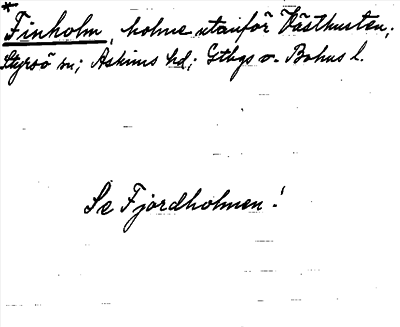 * Finholm, holme utanför Västkusten;
Styrsö sn; Askims hd; Gtbgs o. Bohus l.
Se Fjordholmen!